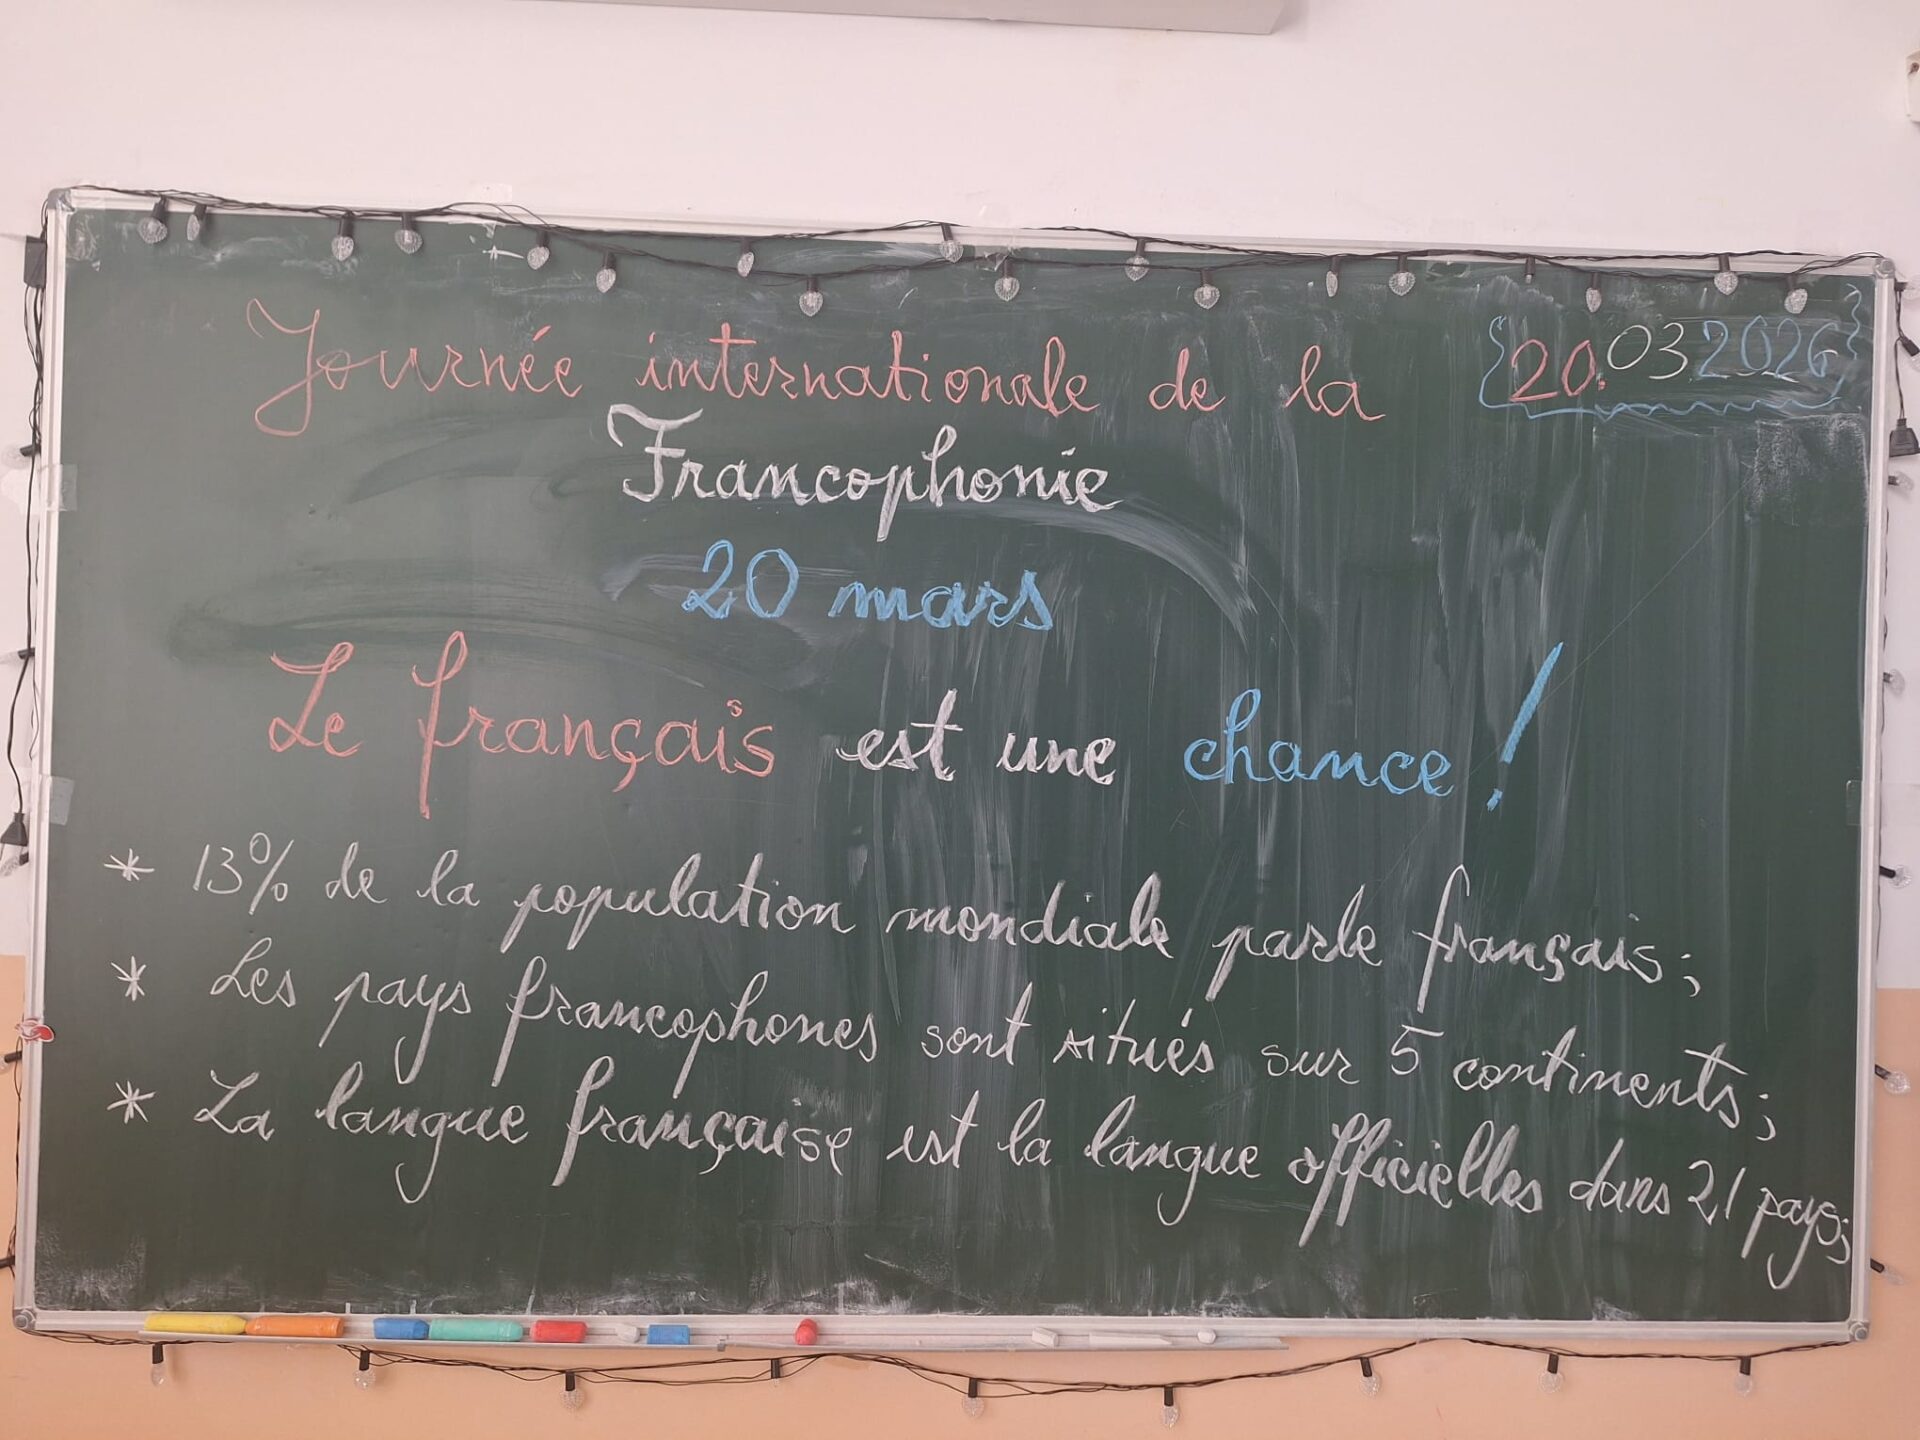 Journée internationale de la
20.03 2026
Francophonie
20 mars
Le français est une chance !
* 13% de la population mondiale parle français ;
* Les pays francophones sont situés sur 5 continents ;
* La langue française est la langue officielles dans 21 pays ;